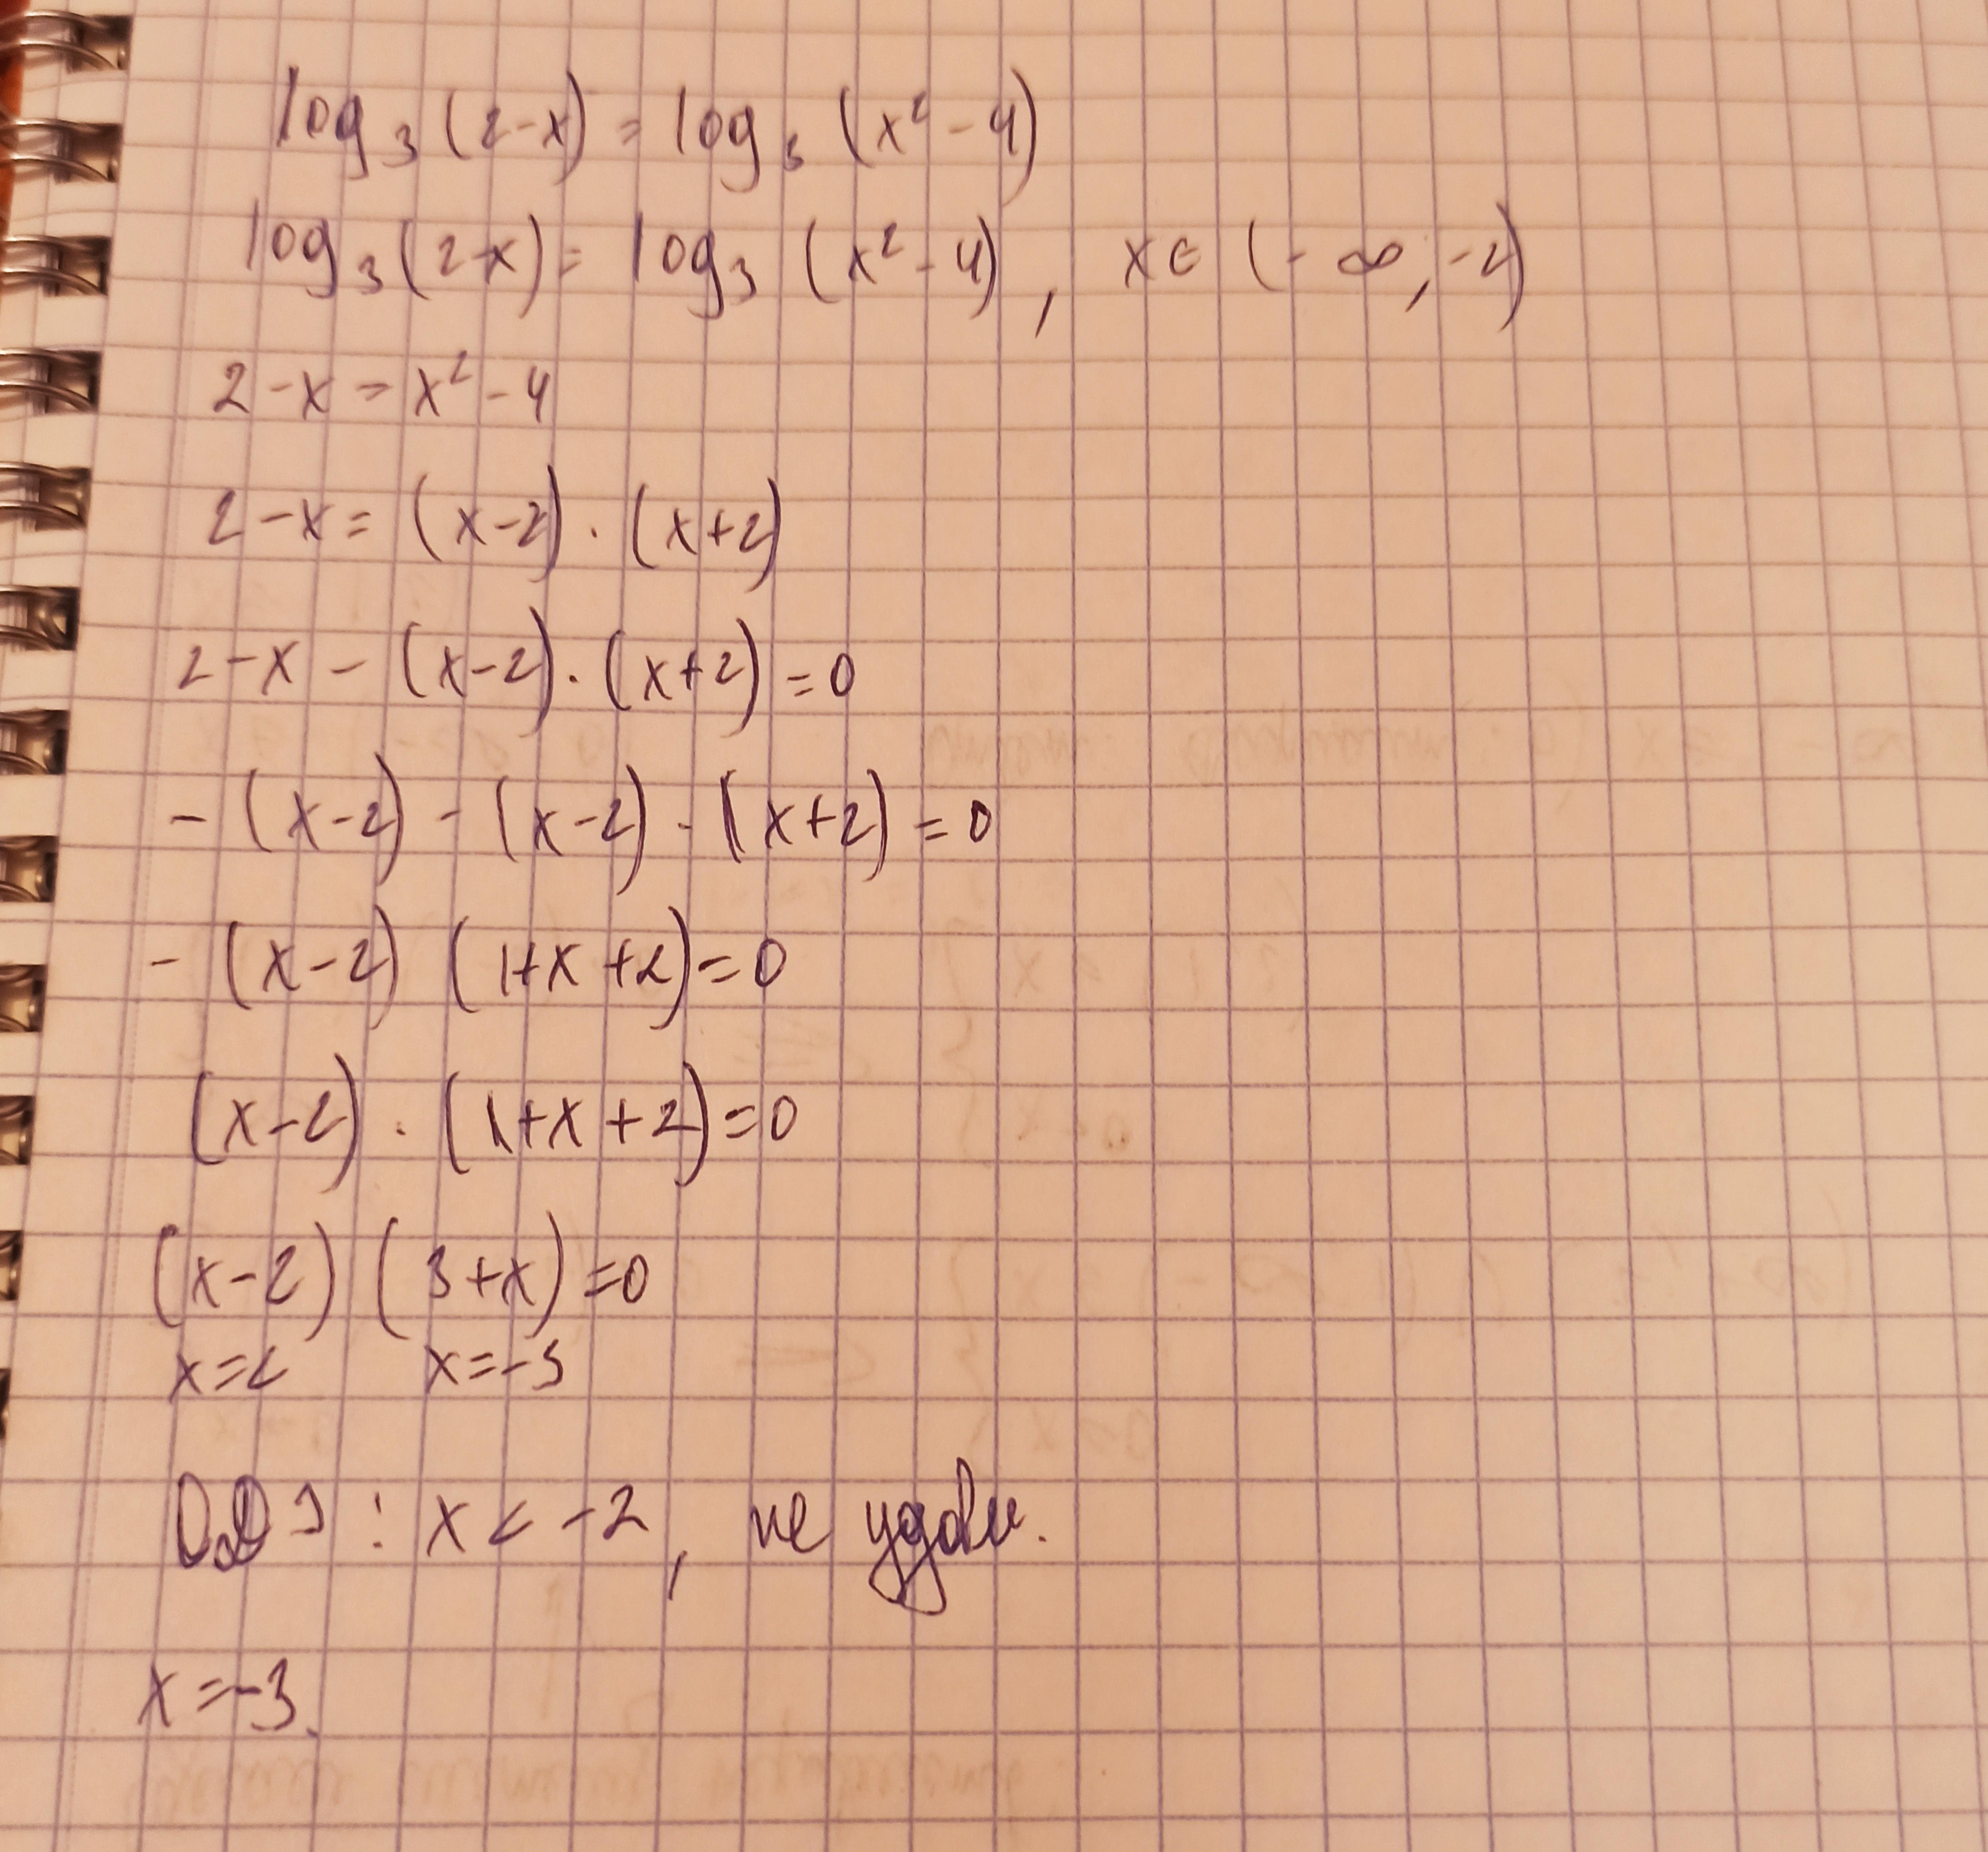 log₃(2-x) = log₃(x²-4)
log₃(2-x) = log₃(x²-4), x∈(-∞,-2)
2-x = x²-4
2-x = (x-2)·(x+2)
2-x-(x-2)·(x+2)=0
-(x-2)-(x-2)·(x+2)=0
-(x-2)(1+x+2)=0
(x-2)·(1+x+2)=0
(x-2)(3+x)=0
x=2 x=-3
ОДЗ: x<-2, не удовл.
x=-3.